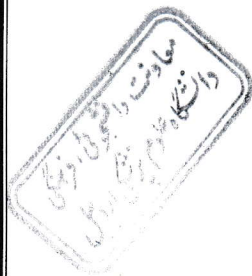 معاونت دانشجویی، فرهنگی
دانشگاه علوم پزشکی